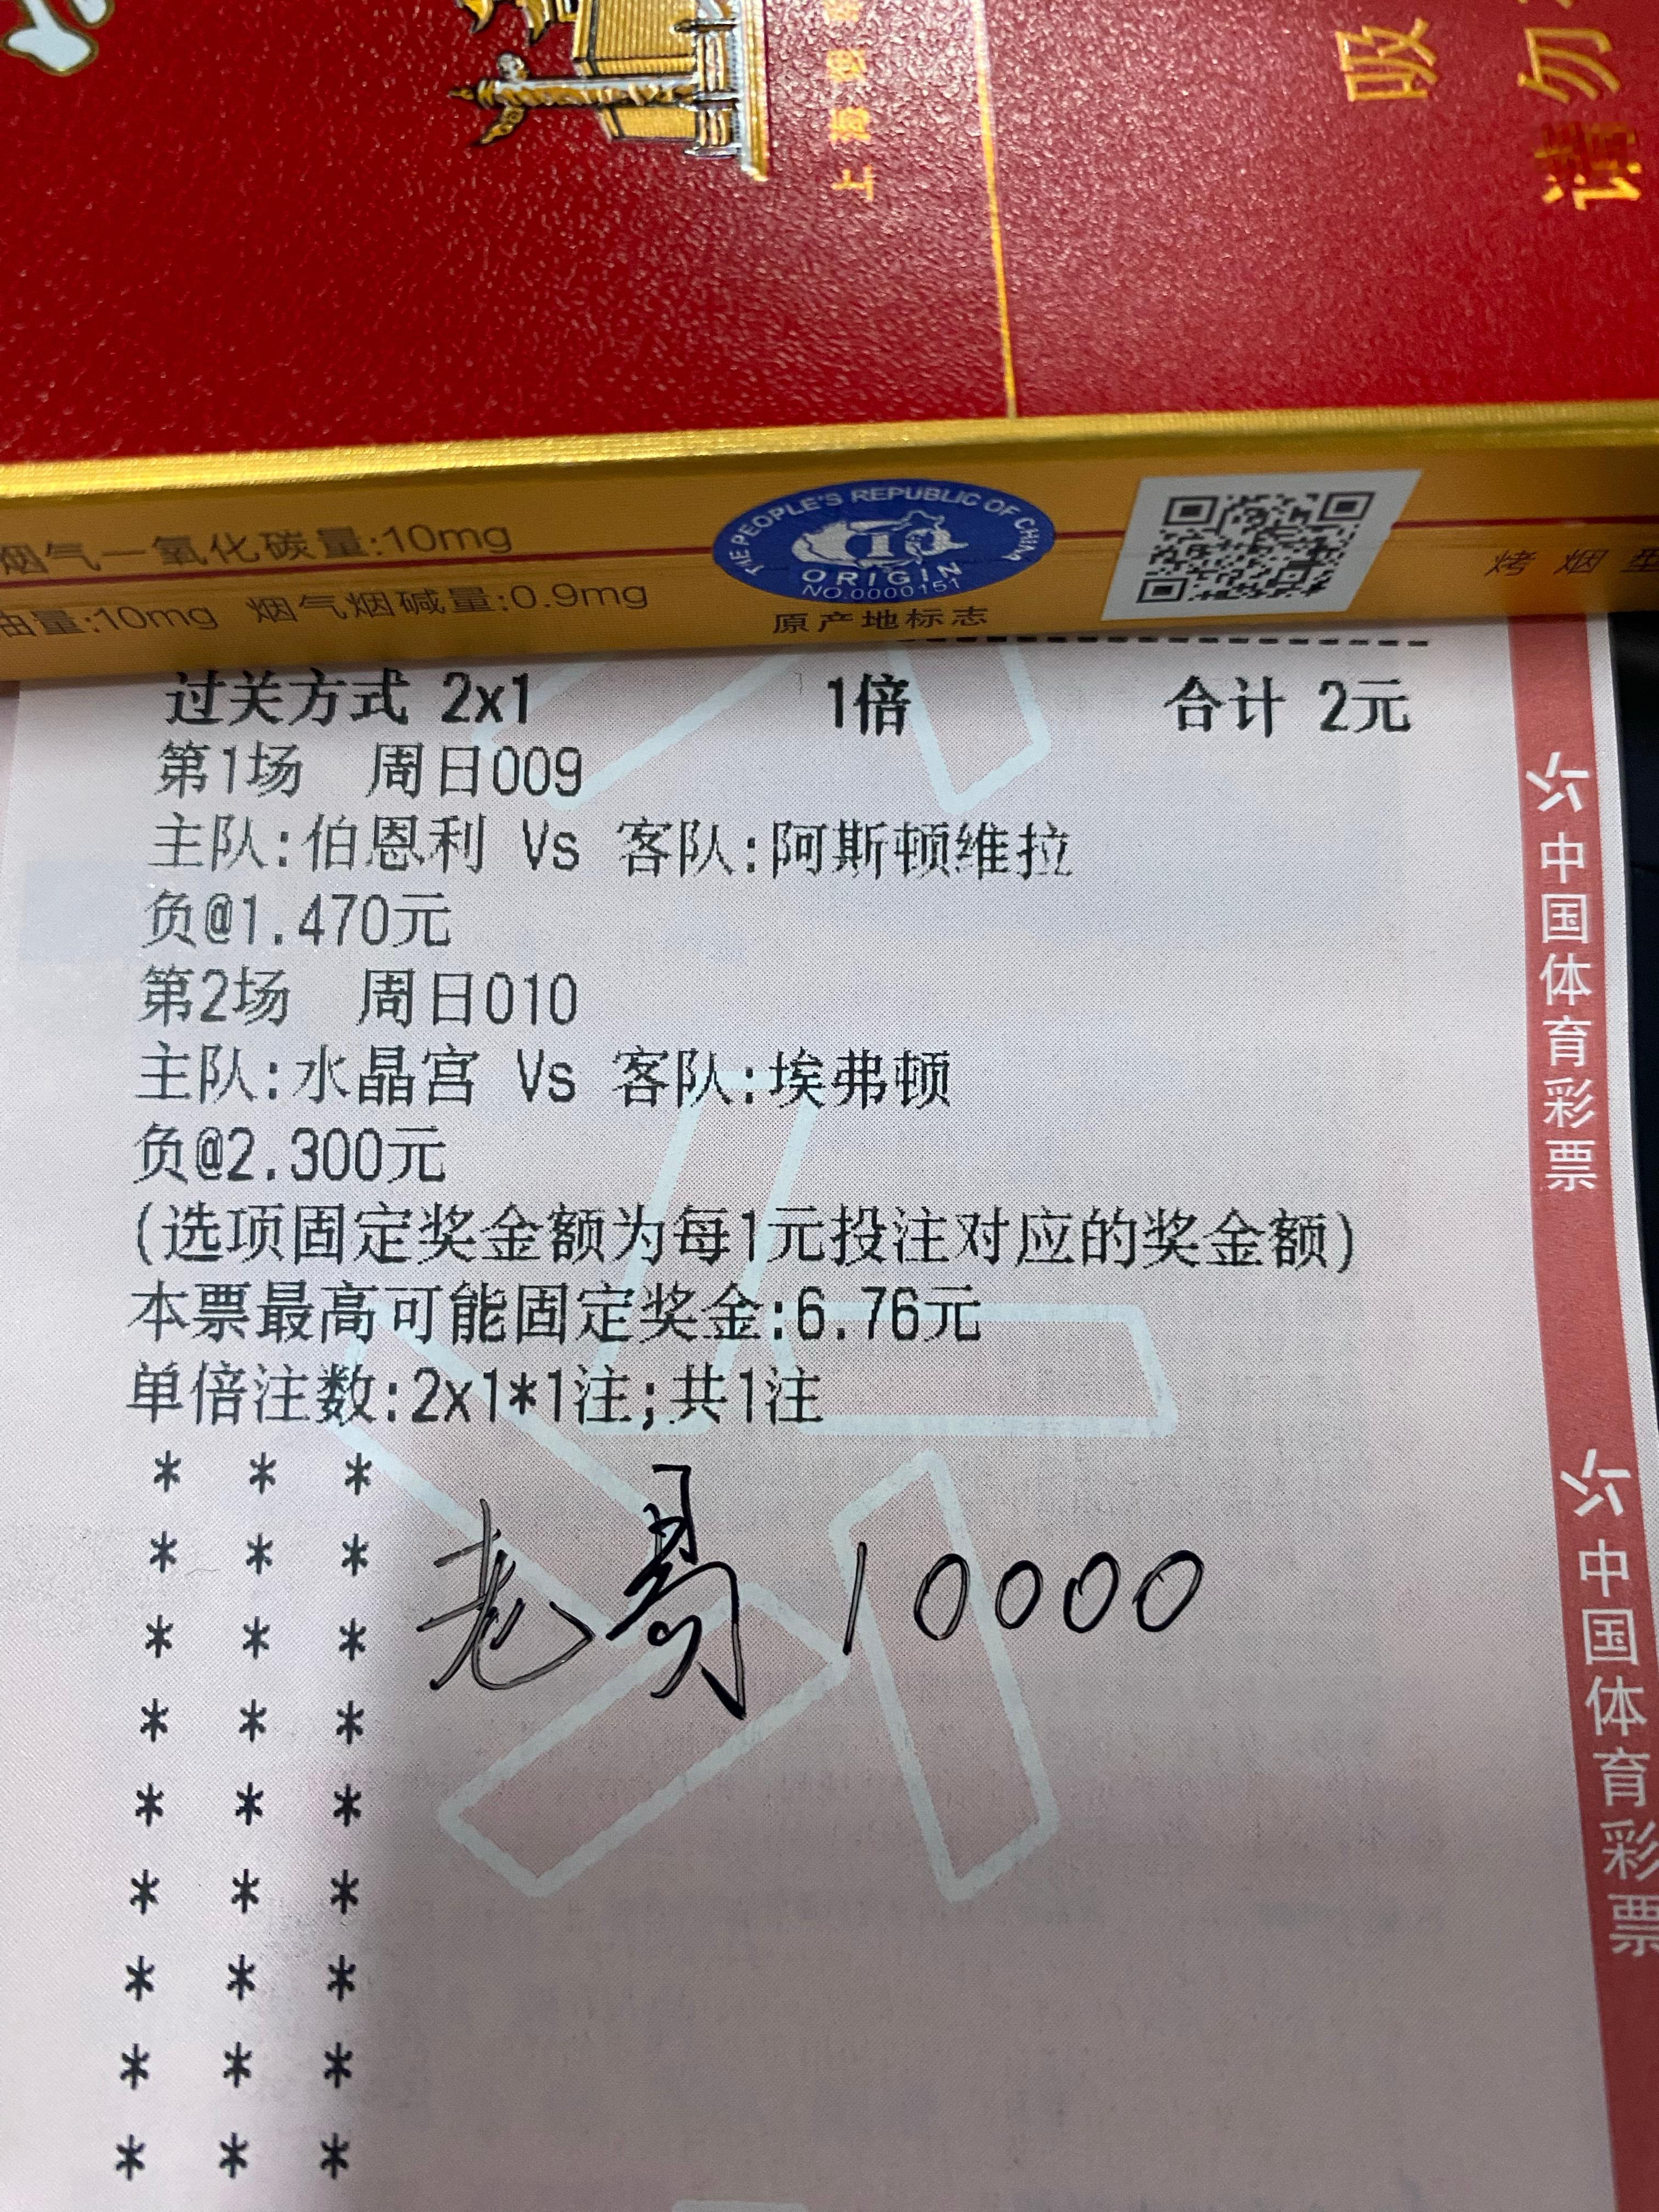 上海
吸
请勿
烟气一氧化碳量:10mg
油量:10mg 烟气烟碱量:0.9mg
THE PEOPLE'S REPUBLIC OF CHINA
ORIGIN
NO.0000151
原产地标志
烤烟型
过关方式 2x1 1倍 合计 2元
第1场 周日009
主队:伯恩利 Vs 客队:阿斯顿维拉
负@1.470元
第2场 周日010
主队:水晶宫 Vs 客队:埃弗顿
负@2.300元
(选项固定奖金额为每1元投注对应的奖金额)
本票最高可能固定奖金:6.76元
单倍注数:2x1*1注;共1注
* * *
* * *
* * *
* * *
* * *
* * *
* * *
* * *
* * *
老哥 10000
中国体育彩票
中国体育彩票